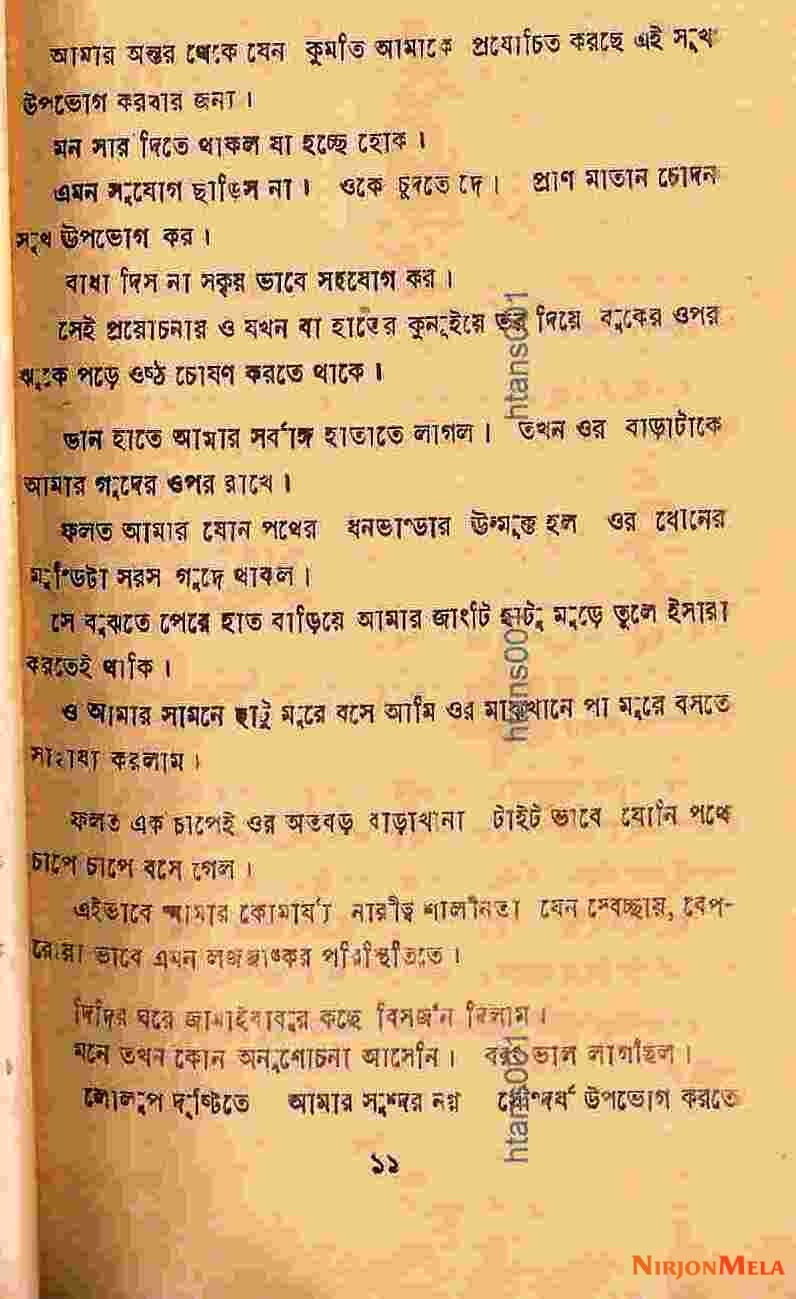 আমার অন্তর থেকে যেন কুমতি আমাকে প্রযোচিত করছে এই সুখ
উপভোগ করবার জন্য।
মন সার দিতে থাকল যা হচ্ছে হোক।
এমন সুযোগ ছাড়িস না। ওকে চুদতে দে। প্রাণ মাতান চোদন
সুখ উপভোগ কর।
বাধা দিস না সক্রয় ভাবে সহযোগ কর।
সেই প্রয়োচনার ও যখন বা হাতের কুনুইয়ে ভর দিয়ে বুকের ওপর
ঝুকে পড়ে ওষ্ঠ চোষণ করতে থাকে।
ডান হাতে আমার সর্বাঙ্গ হাতাতে লাগল। তখন ওর বাড়াটাকে
আমার গুদের ওপর রাখে।
ফলত আমার যোন পথের ধনভাণ্ডার উন্মুক্ত হল ওর ধোনের
মুণ্ডিটা সরস গুদে থাকল।
সে বুঝতে পেরে হাত বাড়িয়ে আমার জাংটি হাটু মুড়ে তুলে ইসারা
করতেই থাকি।
ও আমার সামনে হাটু মুরে বসে আমি ওর মাঝখানে পা মুরে বসতে
সাহায্য করলাম।
ফলত এক চাপেই ওর অতবড় বাড়াখানা টাইট ভাবে যোনি পথে
চাপে চাপে বসে গেল।
এইভাবে আমার কোমার্য্য নারীত্ব শালীনতা যেন স্বেচ্ছায়, বেপ-
রোয়া ভাবে এমন লজ্জাষ্কর পরিস্থিতিতে।
দিদির ঘরে জামাইবাবুর কছে বিসর্জন দিলাম।
মনে তখন কোন অনুশোচনা আসেনি। বরং ভাল লাগছিল।
লোলুপ দৃষ্টিতে আমার সুন্দর নগ্ন সৌন্দর্য উপভোগ করতে
১১
htans001
htans001
htans001
NIRJONMELA